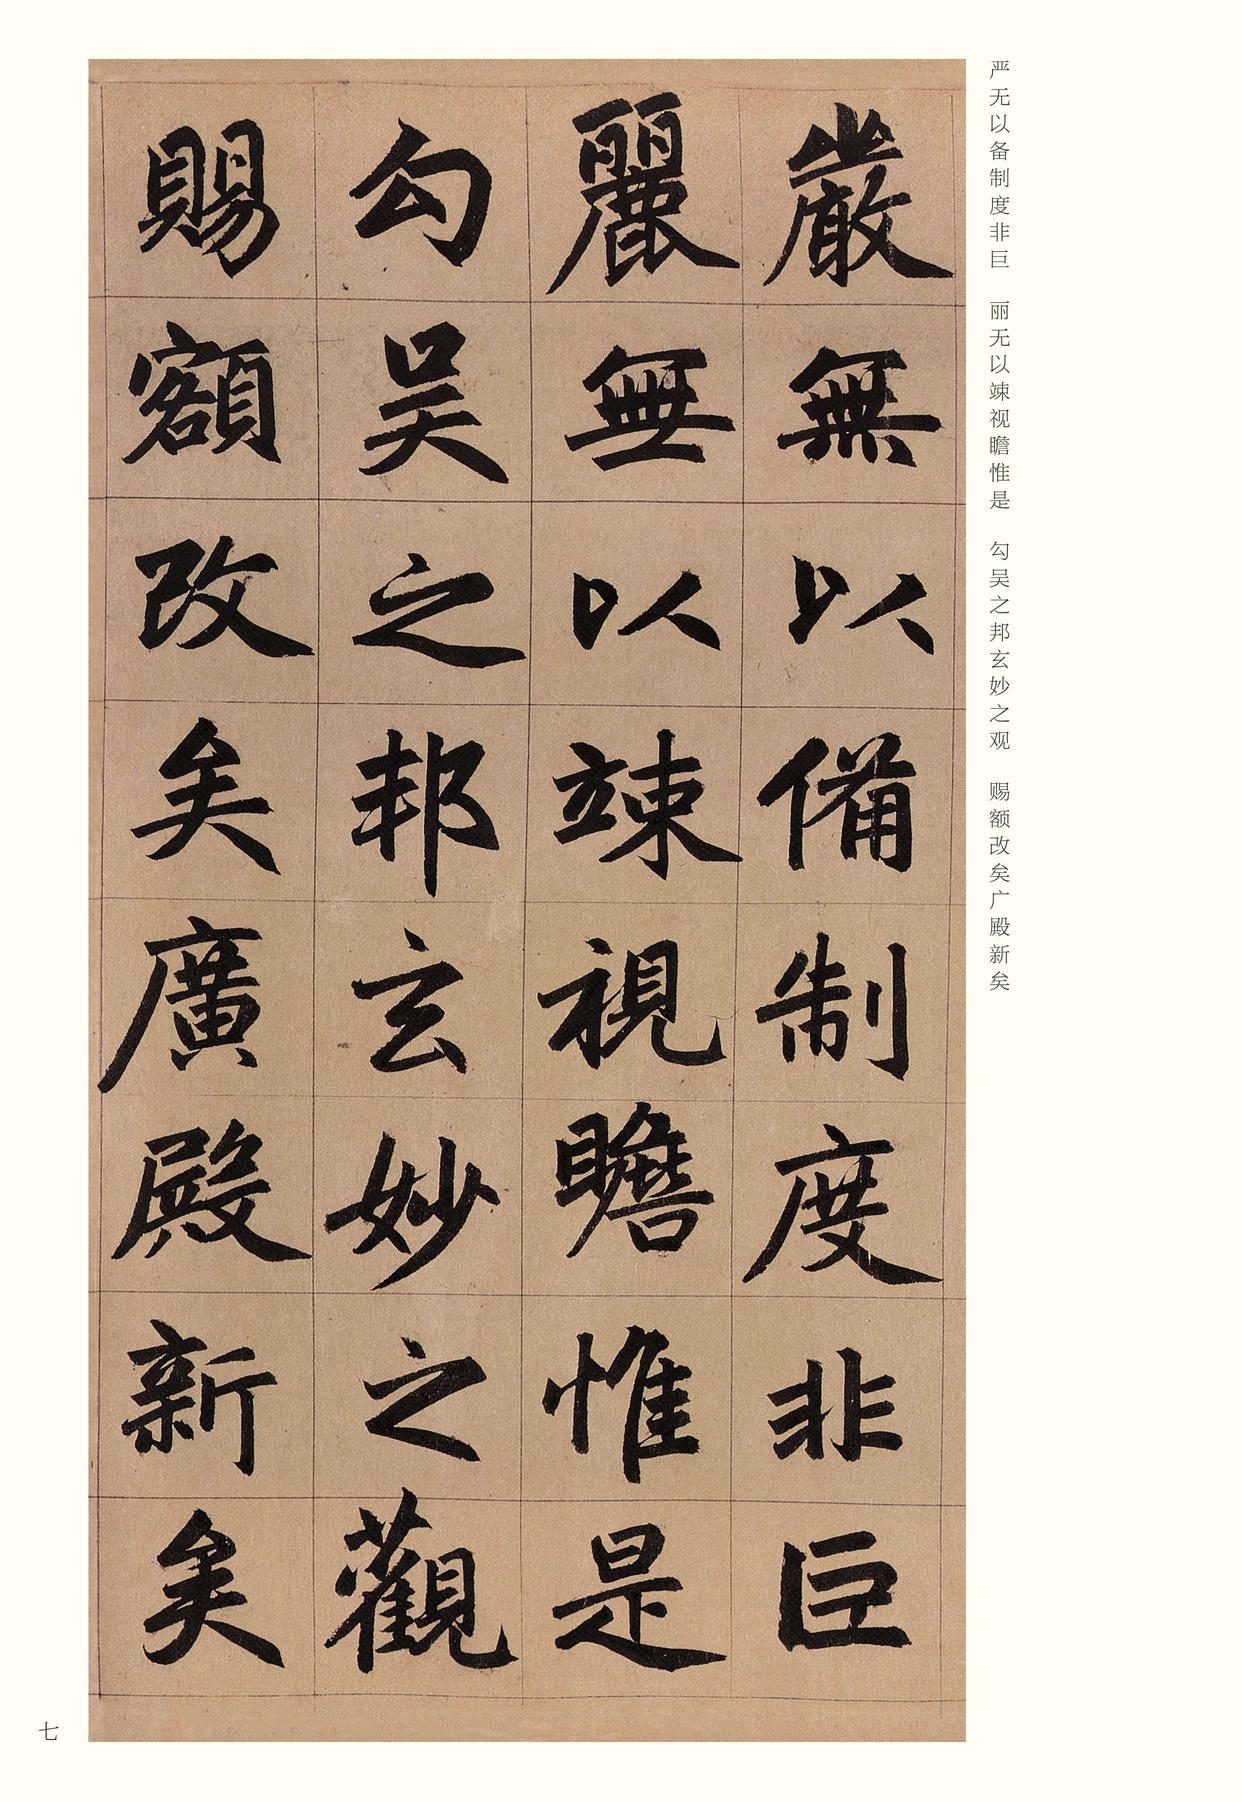 严无以备制度非巨　丽无以竦视瞻惟是　勾吴之邦玄妙之观　赐额改矣广殿新矣
嚴無以備制度非巨
麗無以竦視瞻惟是
勾吴之邦玄妙之觀
賜額改矣廣殿新矣
七